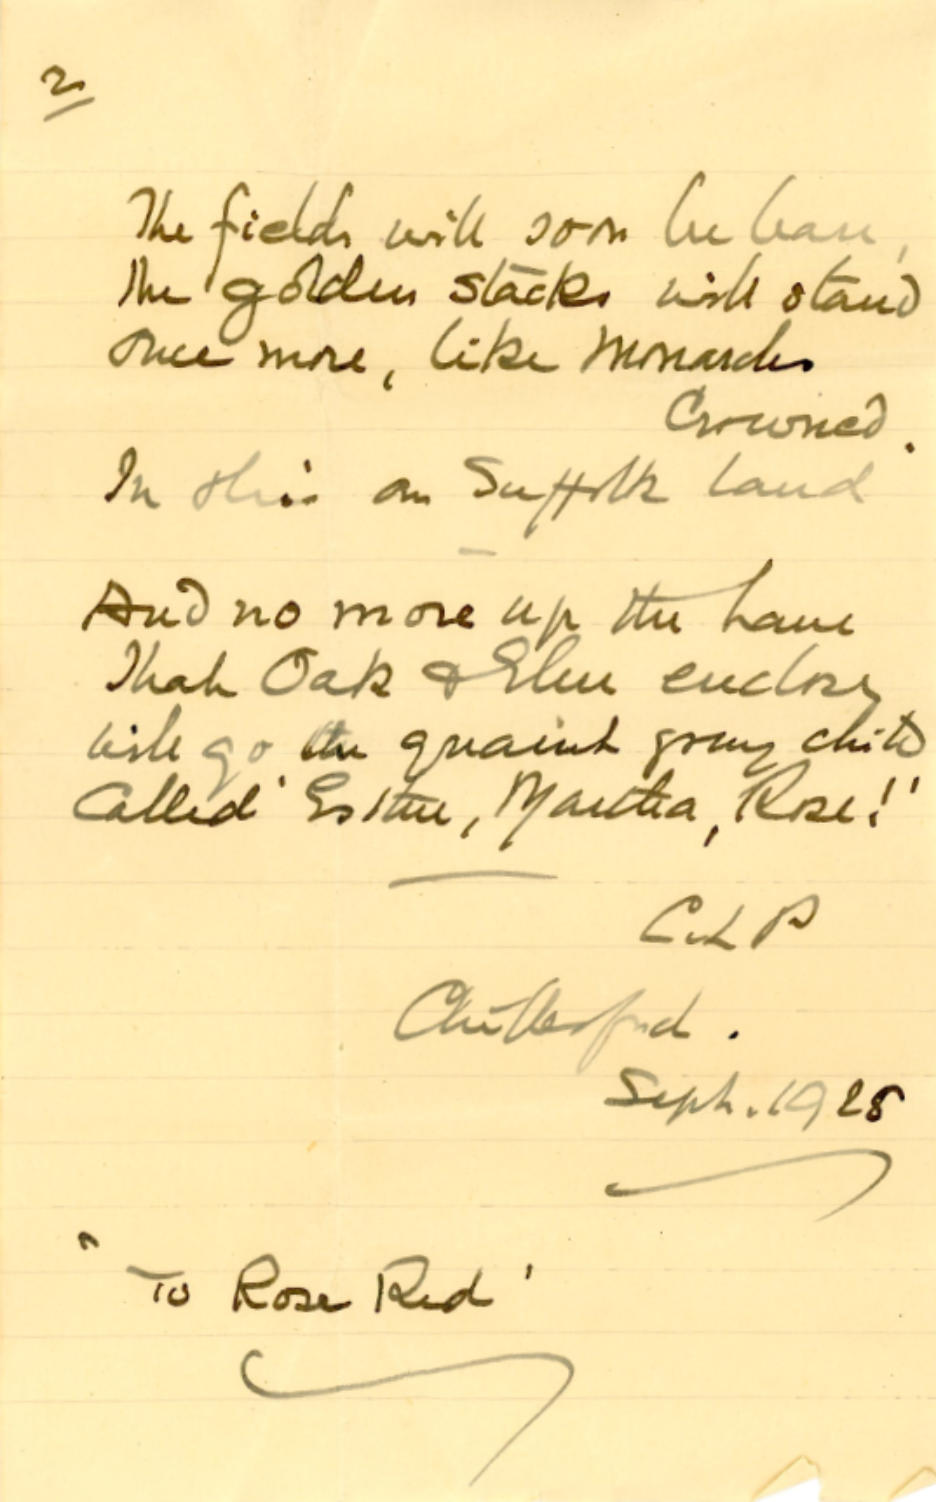 2
The fields will soon be bare,
The golden stacks will stand
Once more, like Monarchs
Crowned.
In this our Suffolk land
And no more up the lane
That Oak & Elm enclose
Will go the quaint young child
Called 'Esther, Martha, Rose!'
C.L P
Chillesford.
Sept. 1928
"To Rose Red'